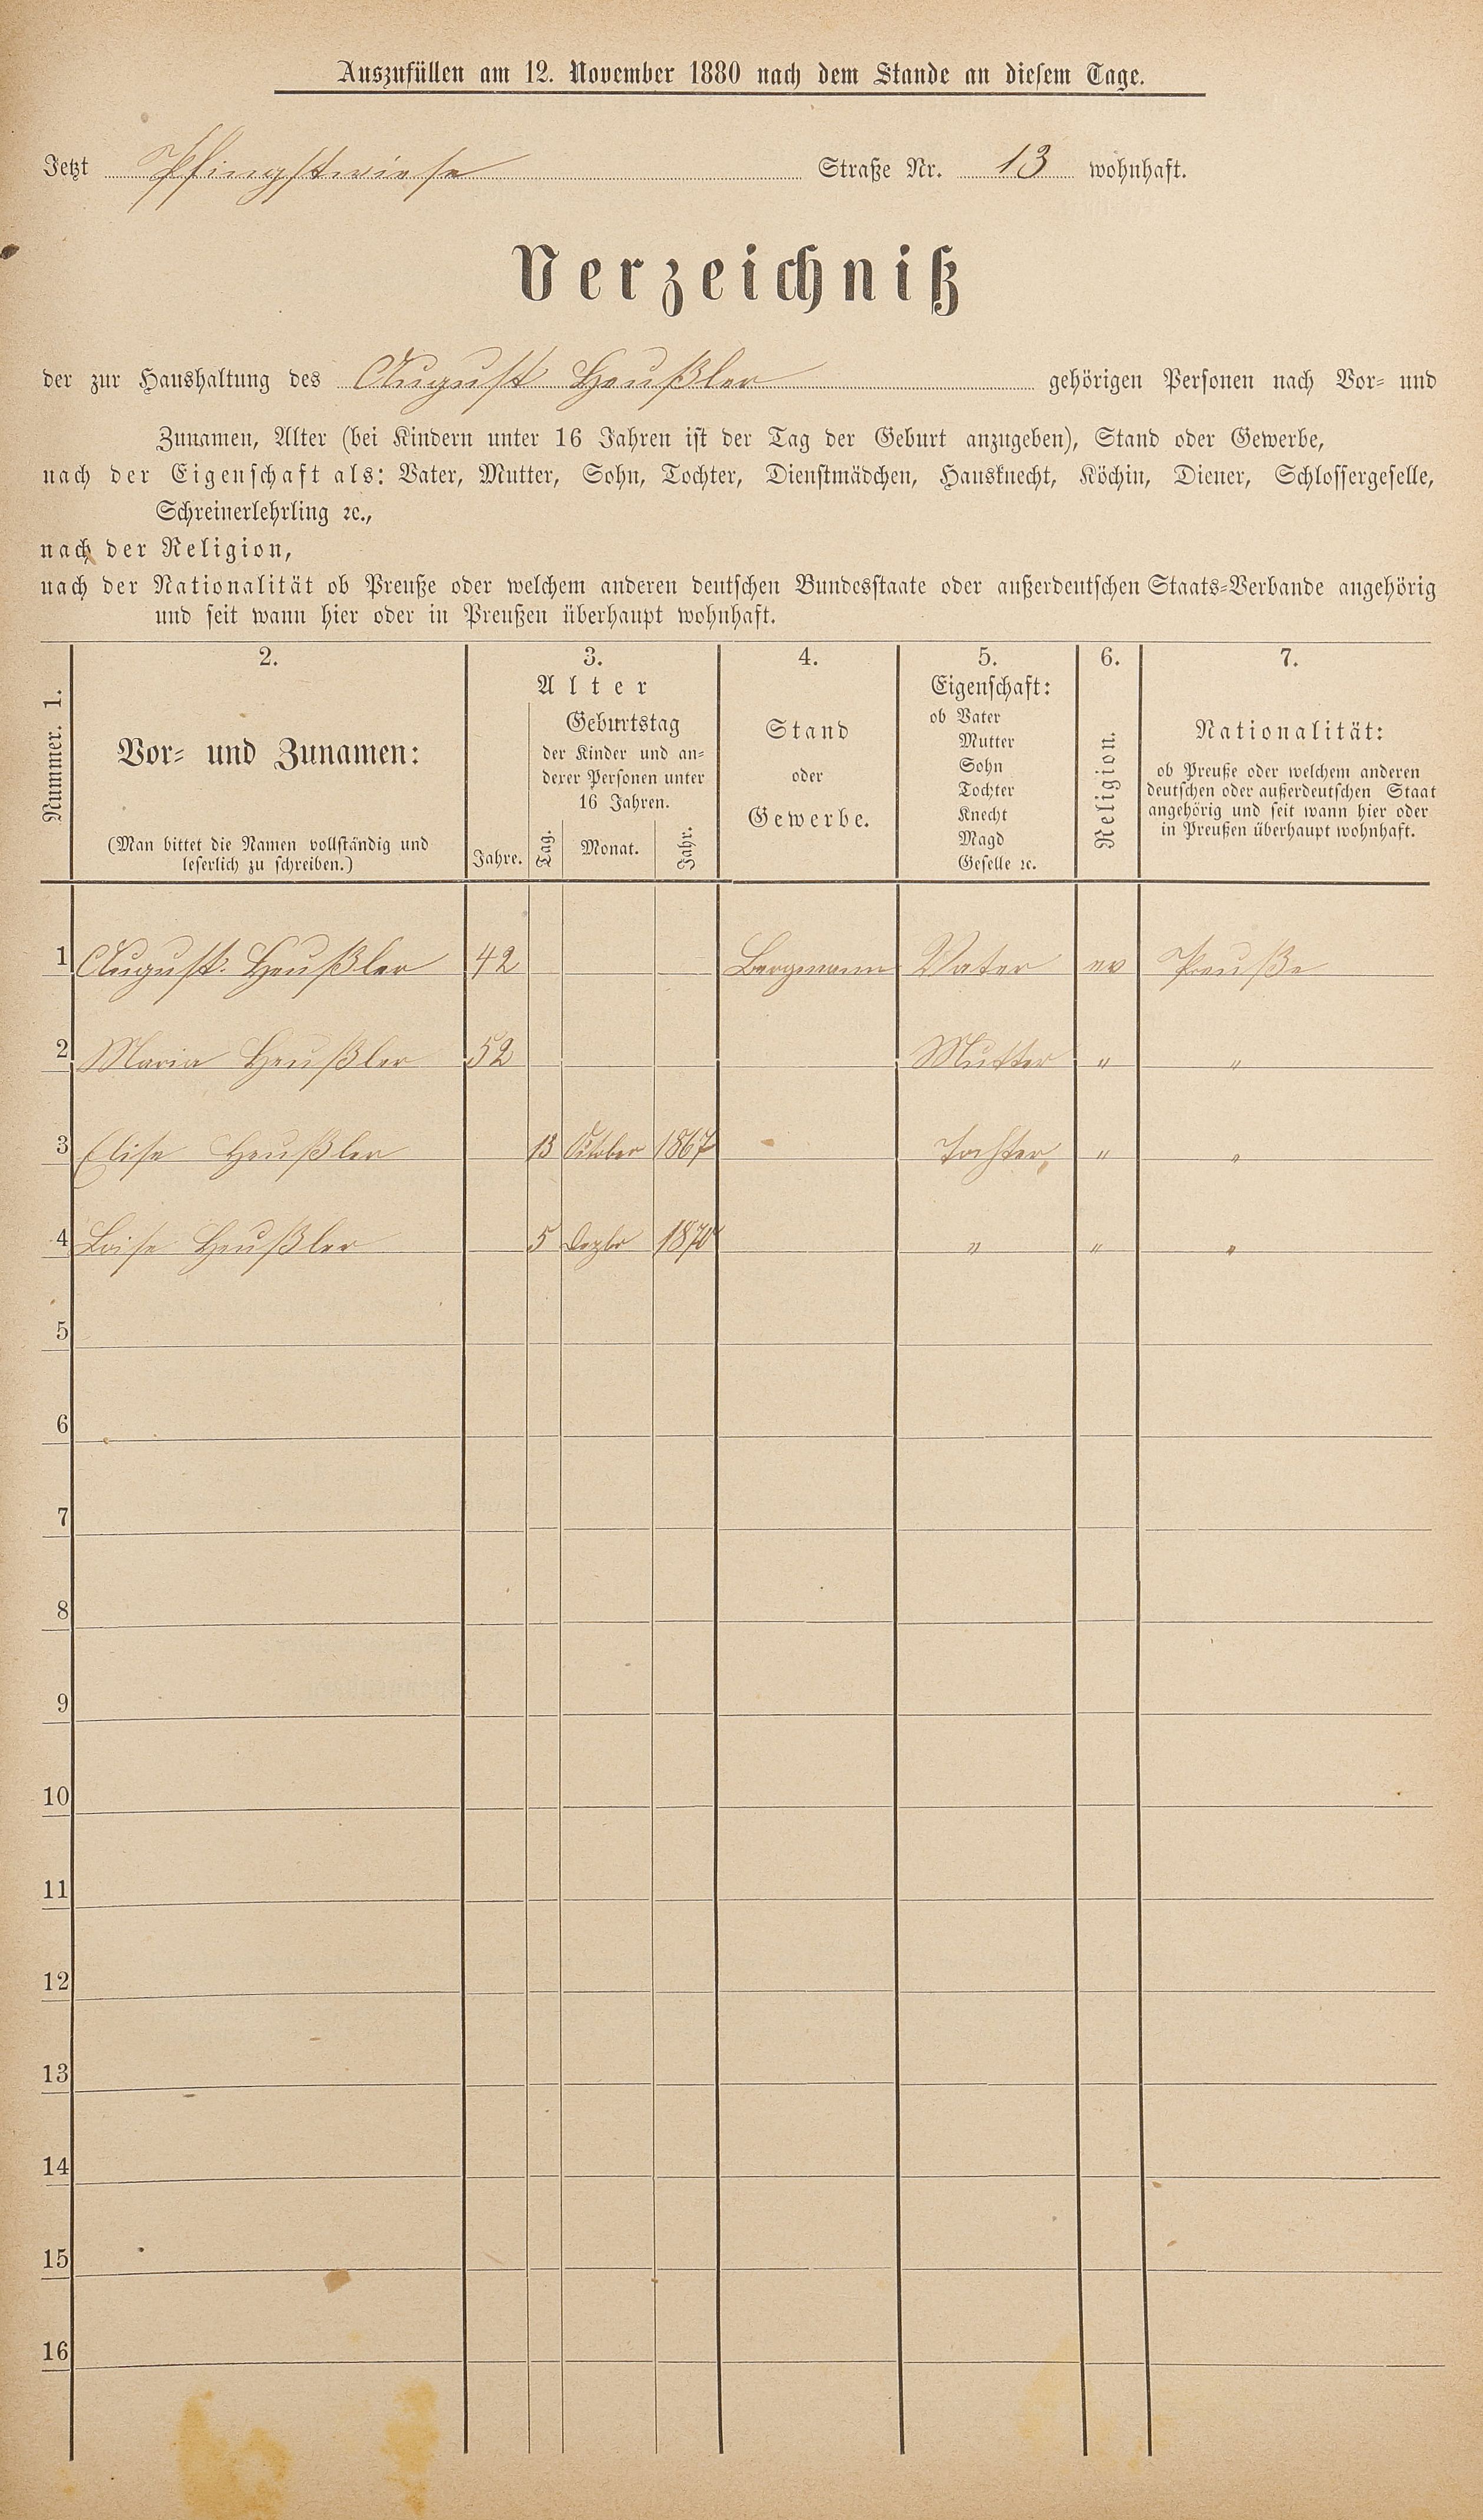 Auszufüllen am 12. November 1880 nach dem Stande an diesem Tage.
Jetzt Pfingstwiese Straße Nr. 13 wohnhaft.
Verzeichniß
der zur Haushaltung des August Heußler gehörigen Personen nach Vor- und
Zunamen, Alter (bei Kindern unter 16 Jahren ist der Tag der Geburt anzugeben), Stand oder Gewerbe,
nach der Eigenschaft als: Vater, Mutter, Sohn, Tochter, Dienstmädchen, Hausknecht, Köchin, Diener, Schlossergeselle,
Schreinerlehrling ꝛc.,
nach der Religion,
nach der Nationalität ob Preuße oder welchem anderen deutschen Bundesstaate oder außerdeutschen Staats-Verbande angehörig
und seit wann hier oder in Preußen überhaupt wohnhaft.
Nummer. 1.
2.
Vor- und Zunamen:
(Man bittet die Namen vollständig und
leserlich zu schreiben.)
3.
Alter
Jahre.
Geburtstag
der Kinder und an-
derer Personen unter
16 Jahren.
Tag.
Monat.
Jahr.
4.
Stand
oder
Gewerbe.
5.
Eigenschaft:
ob Vater
Mutter
Sohn
Tochter
Knecht
Magd
Geselle ꝛc.
6.
Religion.
7.
Nationalität:
ob Preuße oder welchem anderen
deutschen oder außerdeutschen Staat
angehörig und seit wann hier oder
in Preußen überhaupt wohnhaft.
1 August Heußler 42 Bergmann Vater ev Preuße
2 Maria Heußler 52 Mutter " "
3 Elise Heußler 13 October 1867 Tochter " "
4 Loise Heußler 5 Dezbr 1870 " " "
5
6
7
8
9
10
11
12
13
14
15
16